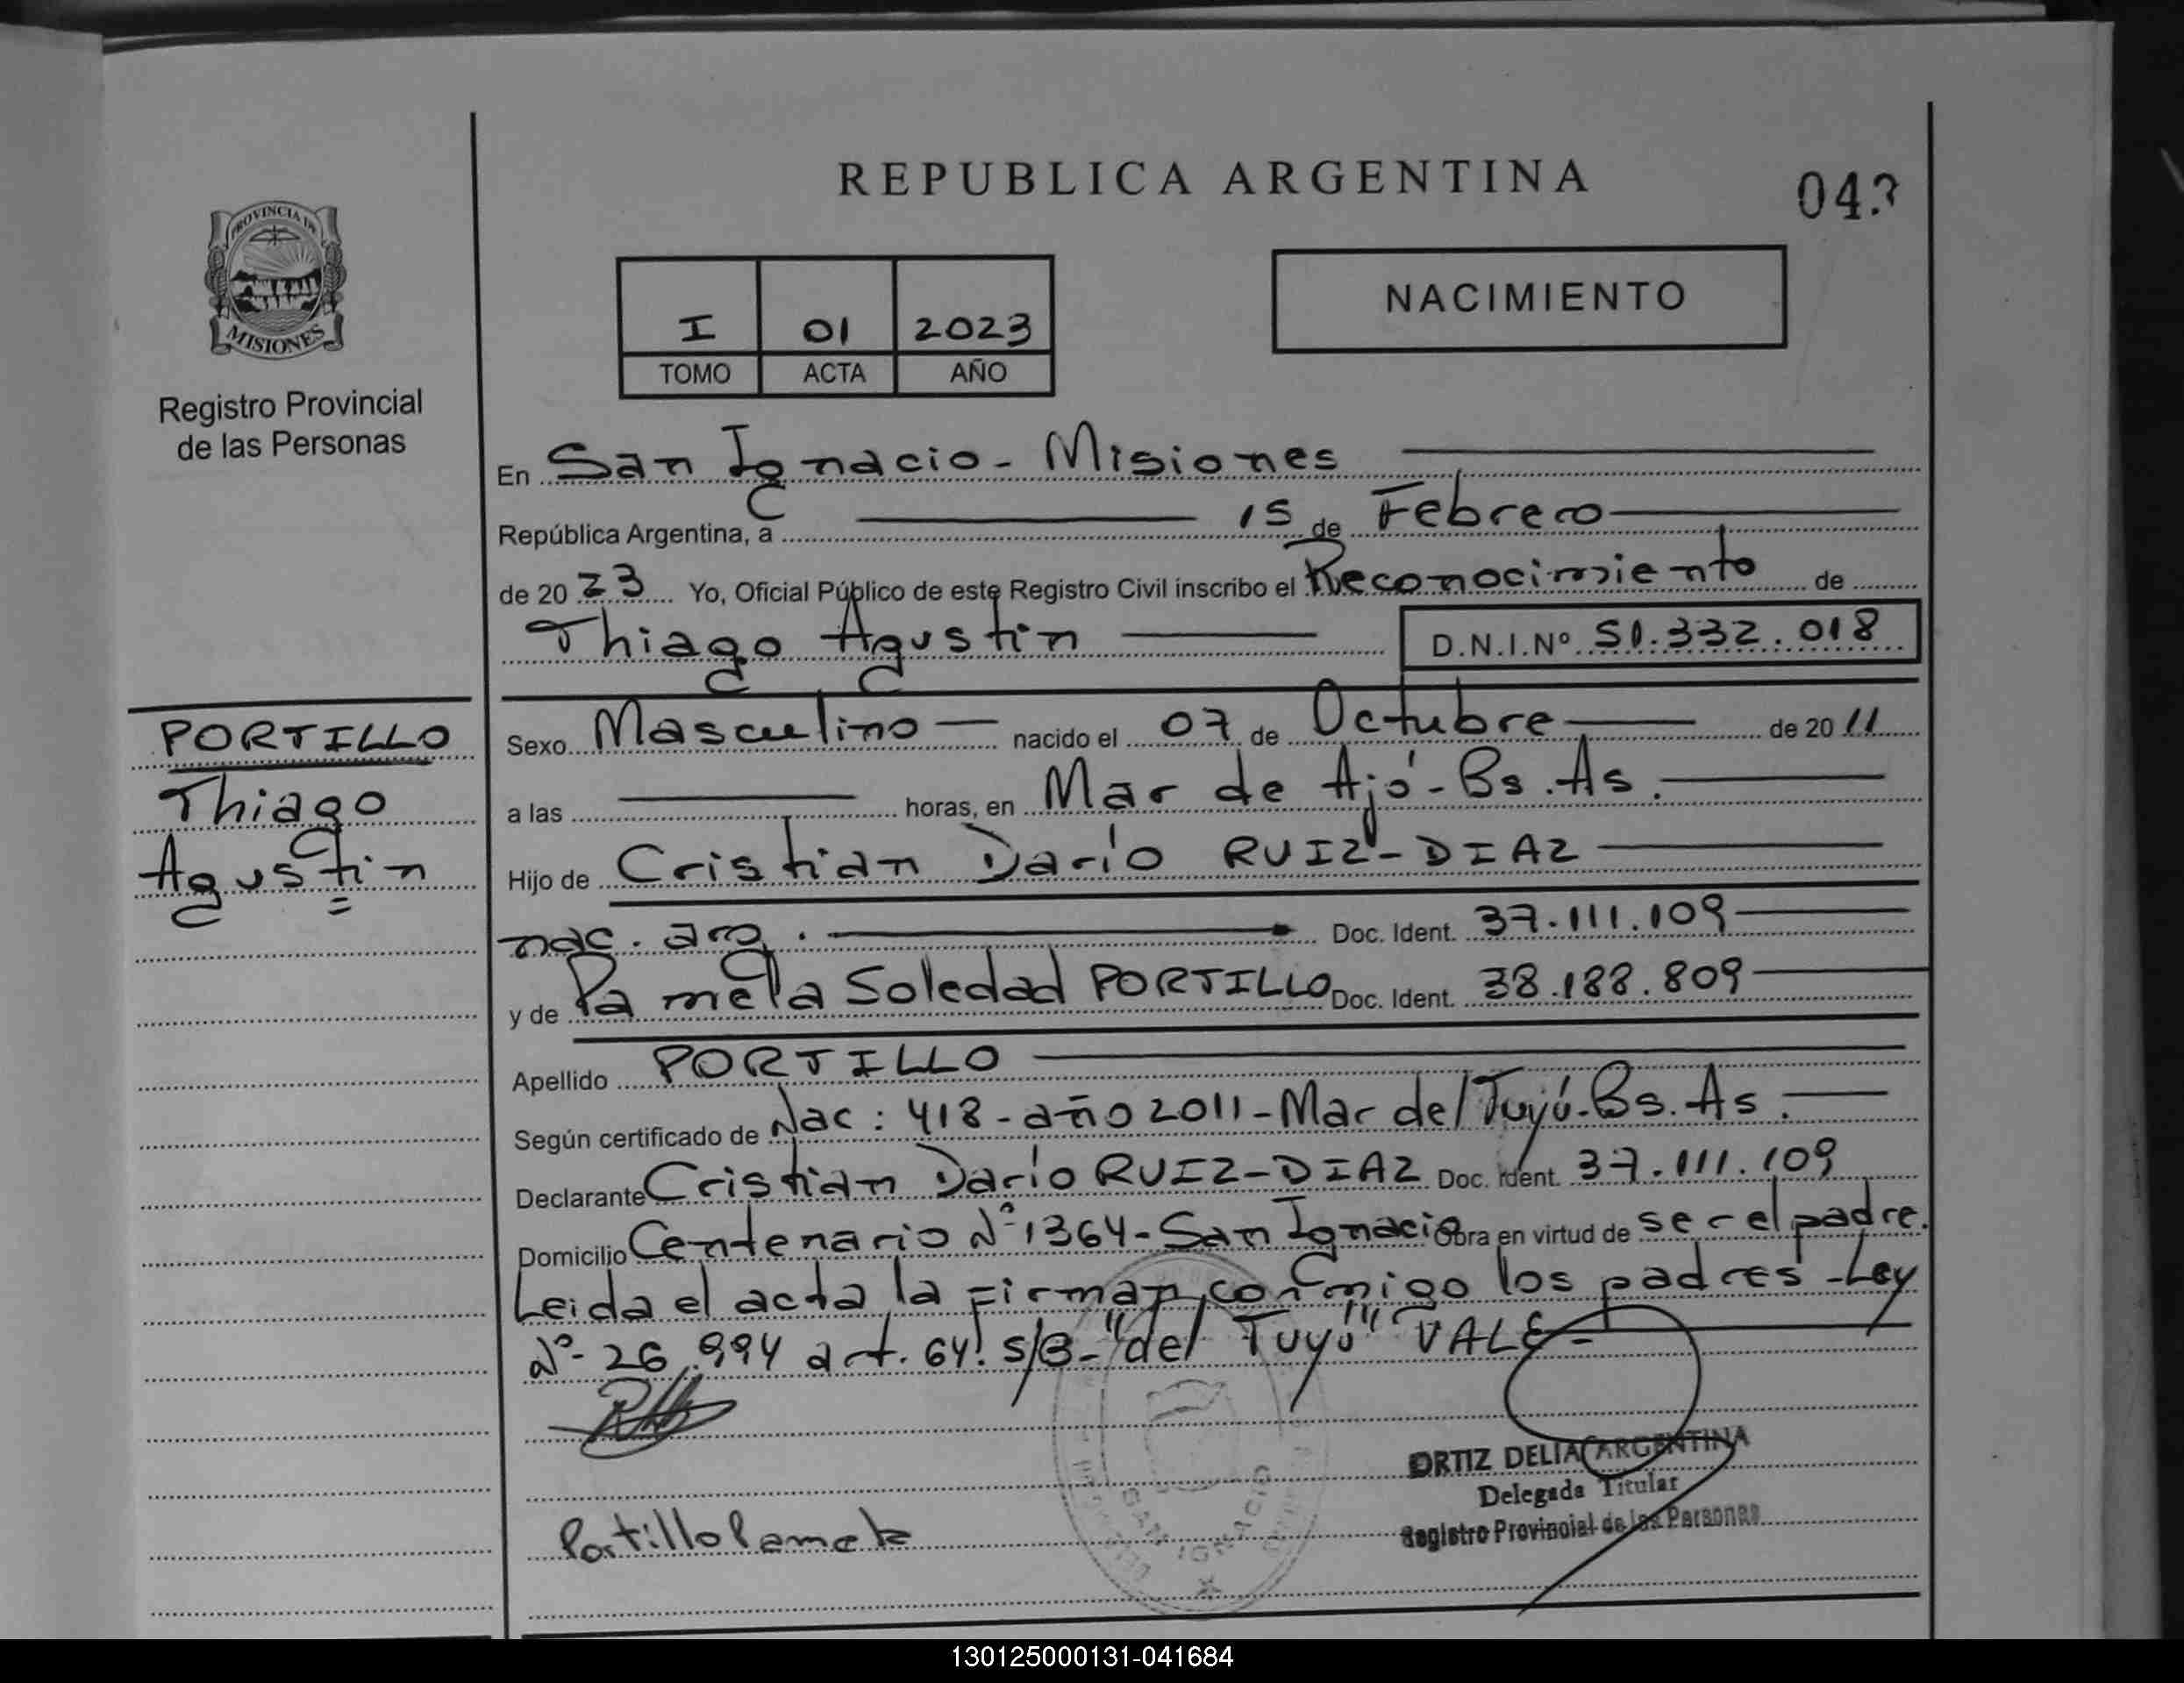 REPUBLICA ARGENTINA
PROVINCIA DE
MISIONES
Registro Provincial
de las Personas
I 01 2023
TOMO ACTA AÑO
NACIMIENTO
En San Ignacio - Misiones
República Argentina, a 15 de Febrero
de 2023 Yo, Oficial Público de este Registro Civil inscribo el Reconocimiento de
Thiago Agustin D.N.I.Nº 51.332.018
PORTILLO
Thiago
Agustin
Sexo Masculino nacido el 07 de Octubre de 2011
a las horas, en Mar de Ajó - Bs. As.
Hijo de Cristian Darío RUIZ-DIAZ
nac. arg. Doc. Ident. 37.111.109
y de Pamela Soledad PORTILLO Doc. Ident. 38.188.809
Apellido PORTILLO
Según certificado de Nac: 418 - año 2011 - Mar del Tuyú - Bs. As.
Declarante Cristian Darío RUIZ-DIAZ Doc. Ident. 37.111.109
Domicilio Centenario Nº 1364 - San Ignacio Obra en virtud de ser el padre.
Leida el acta la firman conmigo los padres - Ley
Nº - 26.994 art. 64! S/B - "del Tuyú" VALE -
ORTIZ DELIA ARGENTINA
Delegada Titular
Registro Provincial de las Personas
Portillo Pamela
SAN IGNACIO
130125000131-041684